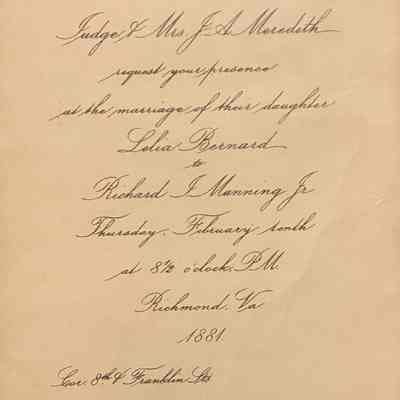 Judge & Mrs J. A. Meredith
request your presence
at the marriage of their daughter
Lelia Bernard
to
Richard I Manning Jr
Thursday, February tenth
at 8 1/2 o'clock, P.M.
Richmond, Va
1881.
Cor. 8th & Franklin Sts